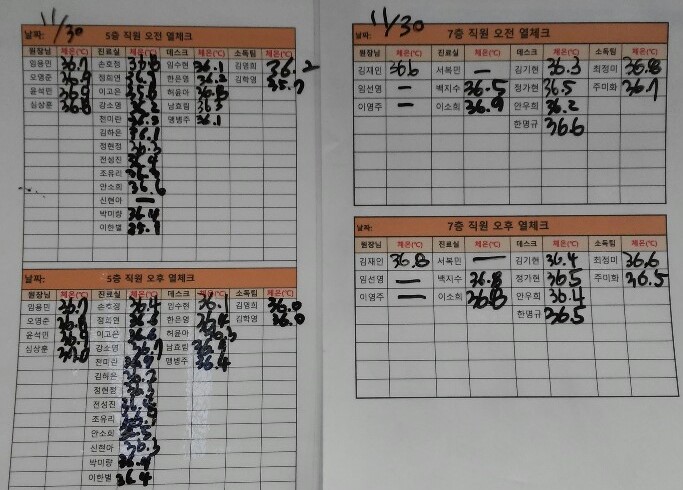 날짜: 11/30 5층 직원 오전 열체크
원장님 체온(℃) 진료실 체온(℃) 데스크 체온(℃) 소독팀 체온(℃)
임용민 36.7 손호정 임수현 36.1 김영희 36.2
오영준 36.9 정희연 한은영 36.2 김학영 35.7
윤석민 이고은 허윤아 36.8
심상훈 36.8 강소영 36.2 남효림 36.3
전미란 맹병주 36.1
김하은
정현정 36.3
전성진 36.4
조유리
안소희 36.6
신현아 —
박미량 36.4
이한별
날짜: 5층 직원 오후 열체크
원장님 체온(℃) 진료실 체온(℃) 데스크 체온(℃) 소독팀 체온(℃)
임용민 36.7 손호정 36.4 임수현 36.1 김영희
오영준 정희연 한은영 김학영
윤석민 이고은 36.6 허윤아 36.3
심상훈 강소영 36.7 남효림
전미란 맹병주 36.4
김하은
정현정
전성진
조유리
안소희
신현아 36.3
박미량 36.4
이한별 36.4
날짜: 11/30 7층 직원 오전 열체크
원장님 체온(℃) 진료실 체온(℃) 데스크 체온(℃) 소독팀 체온(℃)
김재인 36.6 서복민 — 김기현 36.3 최정미 36.8
임선영 — 백지수 36.5 정가현 36.5 주미화 36.7
이영주 — 이소희 36.9 안우희 36.2
한명규 36.6
날짜: 7층 직원 오후 열체크
원장님 체온(℃) 진료실 체온(℃) 데스크 체온(℃) 소독팀 체온(℃)
김재인 36.8 서복민 — 김기현 36.4 최정미 36.6
임선영 — 백지수 36.8 정가현 36.5 주미화 36.5
이영주 — 이소희 36.8 안우희 36.4
한명규 36.5